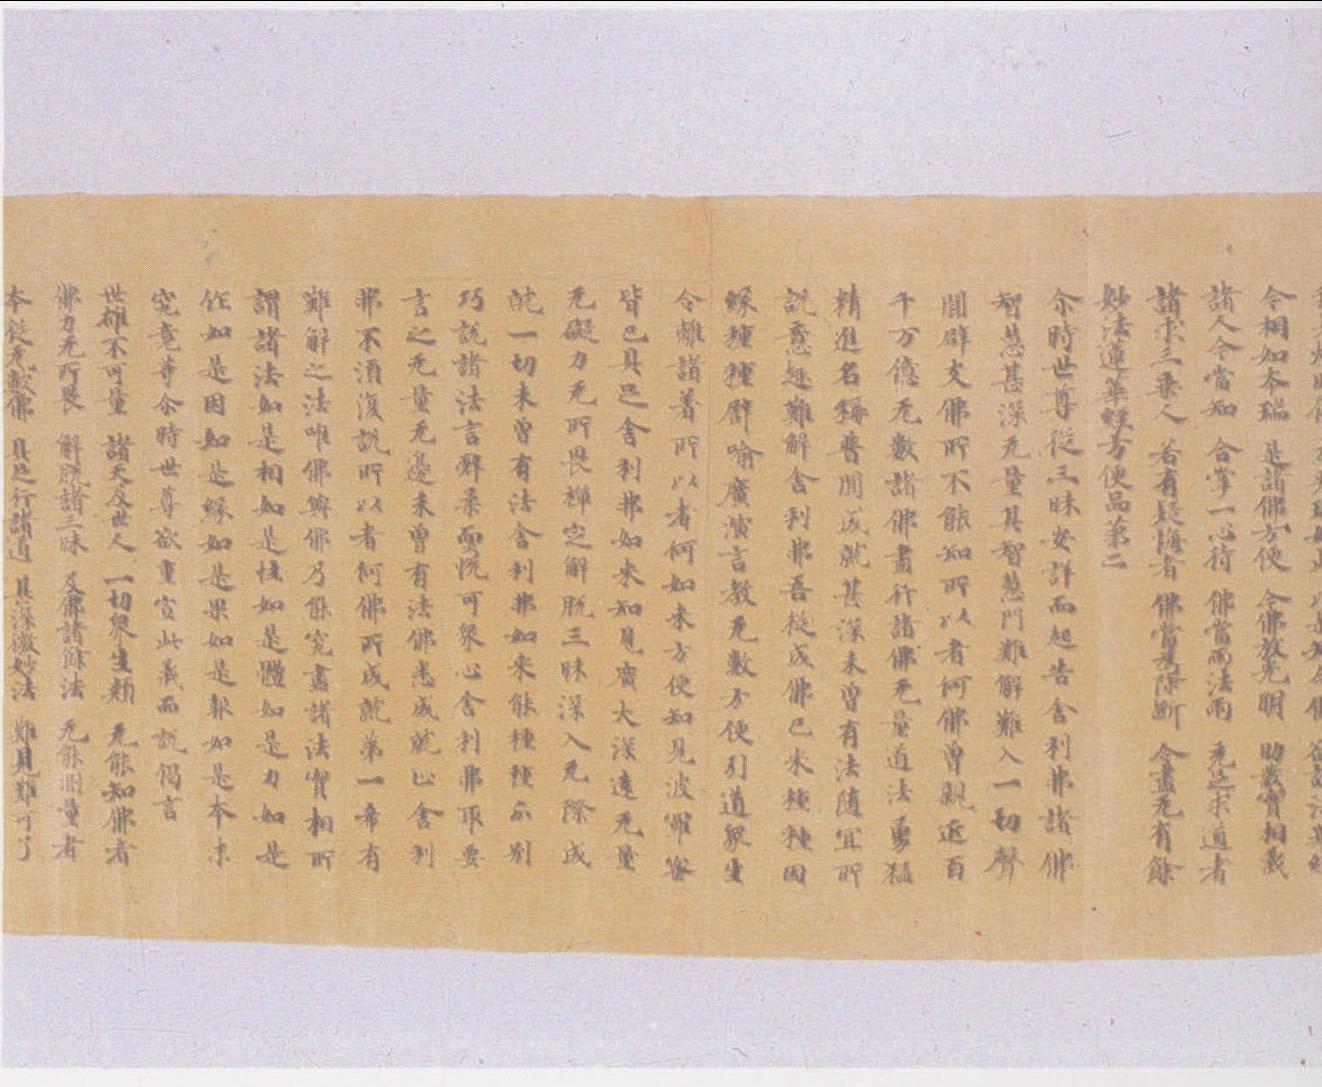 今相如本瑞 是諸佛方便 今佛放光明 助發實相義
諸人今當知 合掌一心待 佛當雨法雨 充足求道者
諸求三乘人 若有疑悔者 佛當為除斷 令盡无有餘
妙法蓮華經方便品第二
尒時世尊從三昧安詳而起告舍利弗諸佛
智慧甚深无量其智慧門難解難入一切聲
聞辟支佛所不能知所以者何佛曾親近百
千万億无數諸佛盡行諸佛无量道法勇猛
精進名稱普聞成就甚深未曾有法随宜所
說意趣難解舍利弗吾從成佛已来種種因
縁種種譬喻廣演言教无數方便引道眾生
令離諸著所以者何如来方便知見波羅蜜
皆已具足舍利弗如来知見廣大深遠无量
无礙力无所畏禪定解脫三昧深入无際成
就一切未曾有法舍利弗如来能種種分別
巧說諸法言辭柔耎悅可眾心舍利弗取要
言之无量无邊未曾有法佛悉成就止舍利
弗不須復說所以者何佛所成就第一希有
難解之法唯佛與佛乃能究盡諸法實相所
謂諸法如是相如是性如是體如是力如是
作如是因如是縁如是果如是報如是本末
究竟等尒時世尊欲重宣此義而說偈言
世雄不可量 諸天及世人 一切眾生類 无能知佛者
佛力无所畏 解脫諸三昧 及佛諸餘法 无能測量者
本從无數佛 具足行諸道 甚深微妙法 難見難可了